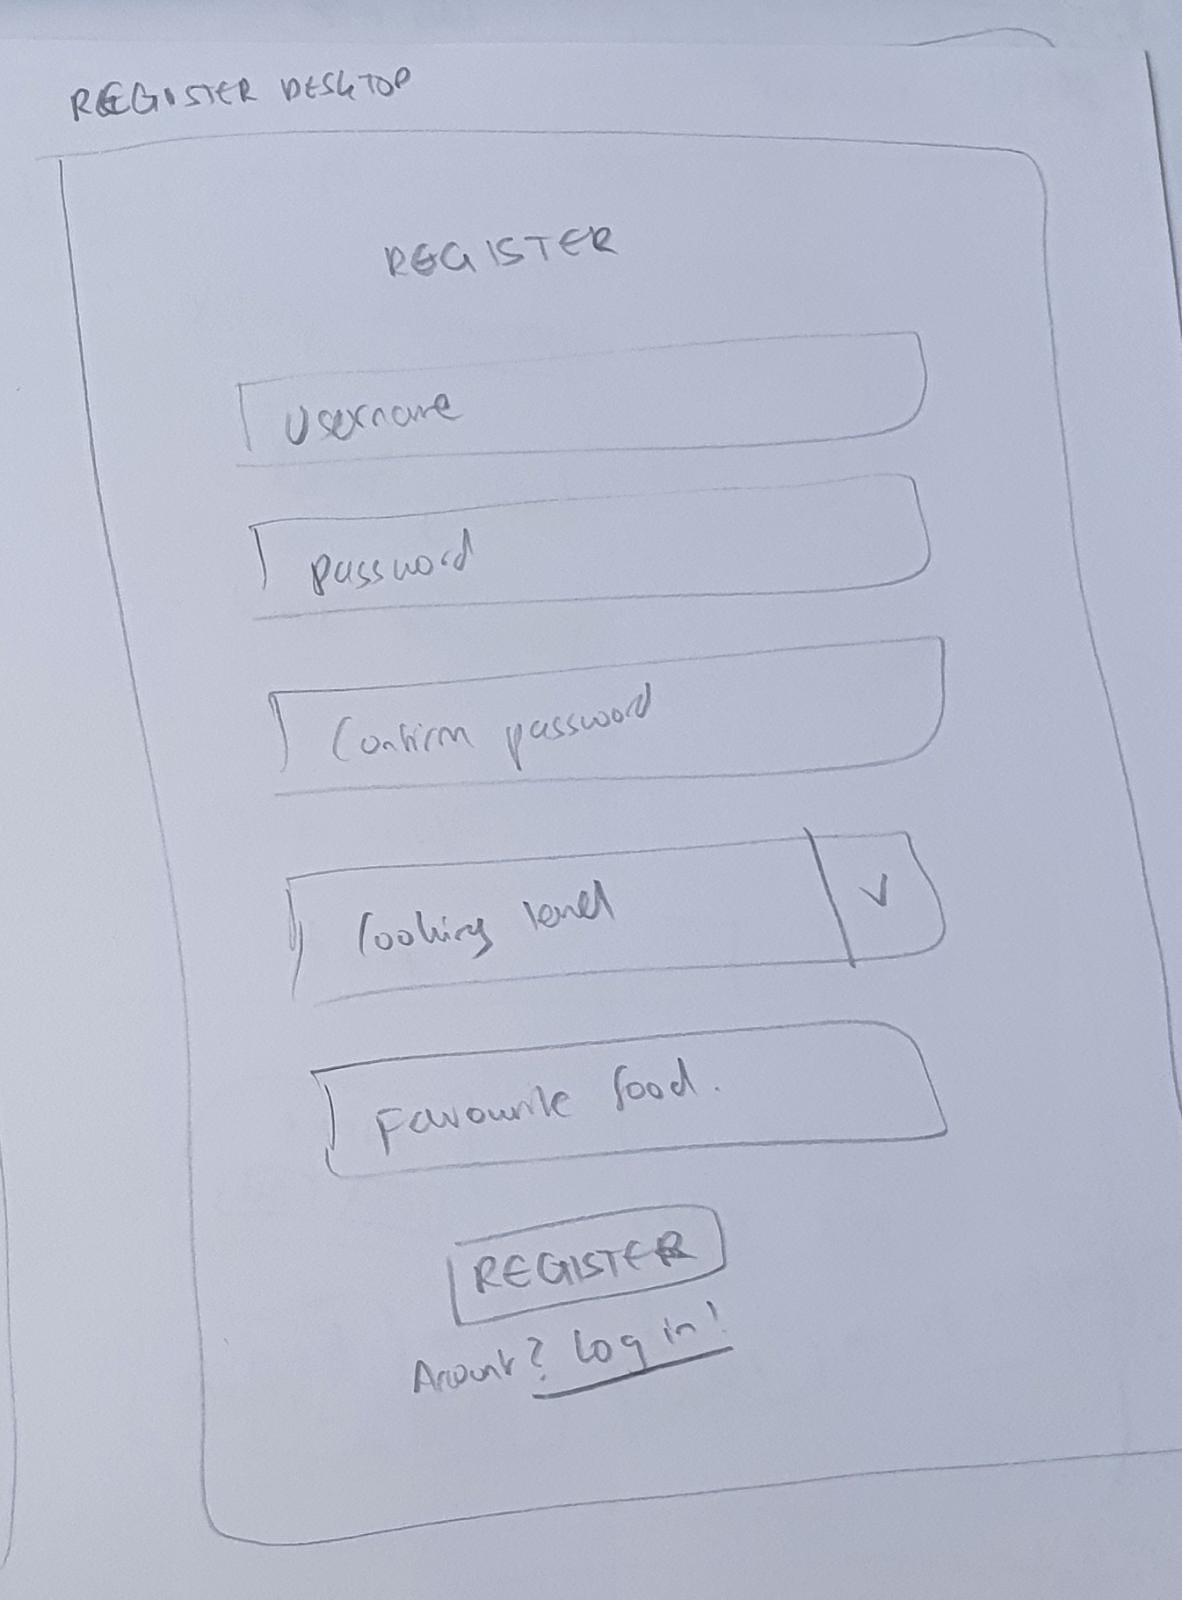 REGISTER DESKTOP
REGISTER
Username
password
Confirm password
Cooking level
v
Favourite food.
REGISTER
Account? Log in!